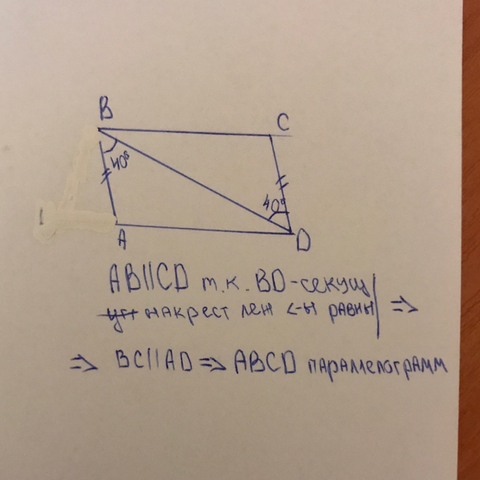 B
C
40°
40°
A
D
AB||CD т.к. BD-секущ
накрест леж <-ы равны | =>
=> BC||AD => ABCD парамелограмм